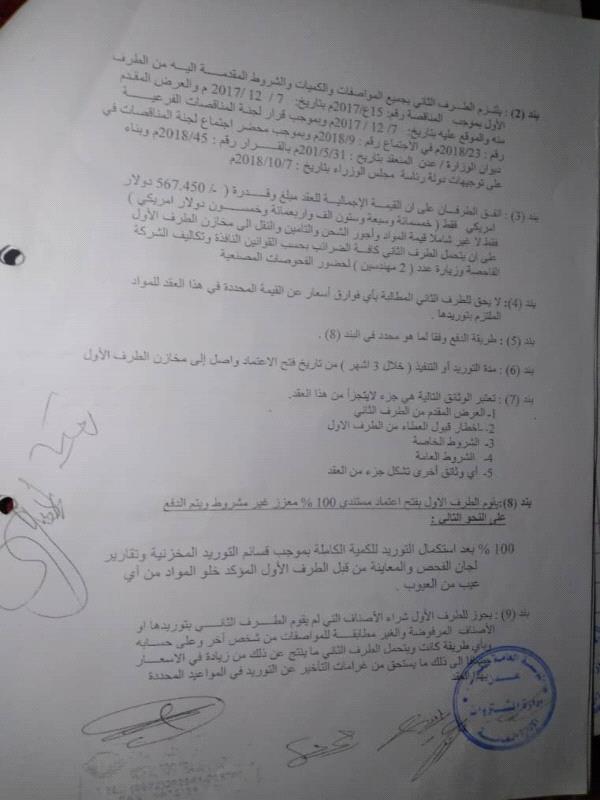 بند (2) : يلتزم الطرف الثاني بجميع المواصفات والكميات والشروط المقدمة اليه من الطرف
الأول بموجب المناقصة رقم: 15ع/2017م بتاريخ: 7 / 12 / 2017م والعرض المقدم
منه والموقع عليه بتاريخ: 7/ 12 / 2017م وبموجب قرار لجنة المناقصات الفرعية
رقم : 2018/23م في الاجتماع رقم : 2018/9م وبموجب محضر اجتماع لجنة المناقصات في
ديوان الوزارة / عدن المنعقد بتاريخ : 201/5/31م بالقرار رقم : 2018/45م وبناء
على توجيهات دولة رئاسة مجلس الوزراء بتاريخ : 2018/10/7م
بند (3) : اتفق الطرفان على ان القيمة الإجمالية للعقد مبلغ وقدرة ( -/ 567.450 دولار
امريكي فقط ( خمسمائة وسبعة وستون الف واربعمائة وخمسون دولار امريكي )
فقط لا غير شاملا قيمة المواد وأجور الشحن والتامين والنقل الى مخازن الطرف الأول
على ان يتحمل الطرف الثاني كافة الضرائب بحسب القوانين النافذة وتكاليف الشركة
الفاحصة وزيارة عدد ( 2 مهندسين ) لحضور الفحوصات المصنعية
بند (4): لا يحق للطرف الثاني المطالبة بأي فوارق أسعار عن القيمة المحددة في هذا العقد للمواد
الملتزم بتوريدها .
بند (5) : طريقة الدفع وفقا لما هو محدد في البند (8) .
بند (6) : مدة التوريد أو التنفيذ ( خلال 3 اشهر ) من تاريخ فتح الاعتماد واصل إلى مخازن الطرف الأول
بند (7) : تعتبر الوثائق التالية هي جزء لايتجزأ من هذا العقد.
1- العرض المقدم من الطرف الثاني
2- -اخطار قبول العطاء من الطرف الاول
3- الشروط الخاصة
4- الشروط العامة
5- أي وثائق أخرى تشكل جزء من العقد
بند (8):يقوم الطرف الاول بفتح اعتماد مستندي 100 % معزز غير مشروط ويتم الدفع
على النحو التالي :
100 % بعد استكمال التوريد للكمية الكاملة بموجب قسائم التوريد المخزنية وتقارير
لجان الفحص والمعاينة من قبل الطرف الأول المؤكد خلو المواد من أي
عيب من العيوب .
بند (9) : يجوز للطرف الأول شراء الأصناف التي لم يقوم الطرف الثاني بتوريدها او
الأصناف المرفوضة والغير مطابقة للمواصفات من شخص آخر وعلى حسابه
وبأي طريقة كانت ويتحمل الطرف الثاني ما ينتج عن ذلك من زيادة في الاسعار
إلى ذلك ما يستحق من غرامات التأخير عن التوريد في المواعيد المحددة
بهذا العقد